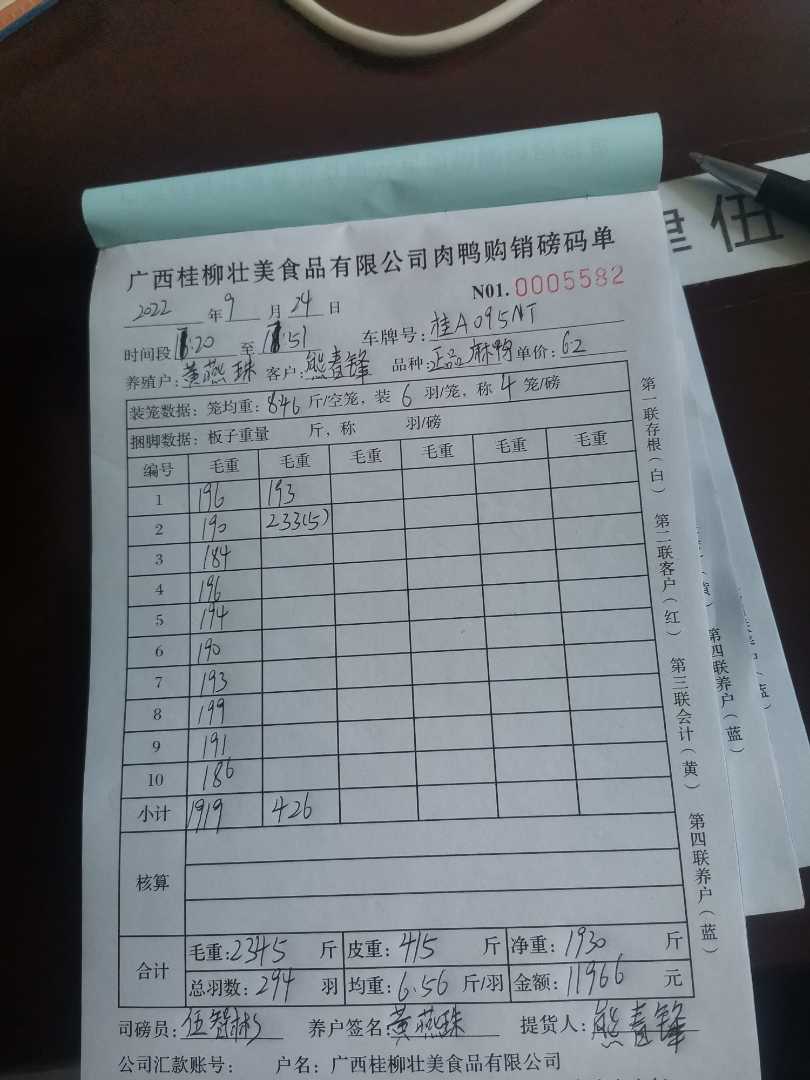 广西桂柳壮美食品有限公司肉鸭购销磅码单
2022 年 9 月 24 日 N01. 0005582
时间段 :20 至 :51 车牌号: 桂A095NT
养殖户: 黄燕珠 客户: 熊春锋 品种: 正品麻鸭 单价: 6.2
装笼数据: 笼均重: 8.46 斤/空笼, 装 6 羽/笼, 称 4 笼/磅
捆脚数据: 板子重量 斤, 称 羽/磅
编号 毛重 毛重 毛重 毛重 毛重 毛重
1 196 193
2 190 233(5)
3 184
4 196
5 194
6 190
7 193
8 199
9 191
10 186
小计 1919 426
核算
合计 毛重: 2345 斤 皮重: 415 斤 净重: 1930 斤
总羽数: 294 羽 均重: 6.56 斤/羽 金额: 11966 元
司磅员: 伍智彬 养户签名: 黄燕珠 提货人: 熊春锋
公司汇款账号: 户名: 广西桂柳壮美食品有限公司
第一联存根(白) 第二联客户(红) 第三联会计(黄) 第四联养户(蓝)
第四联养户(蓝)
伍